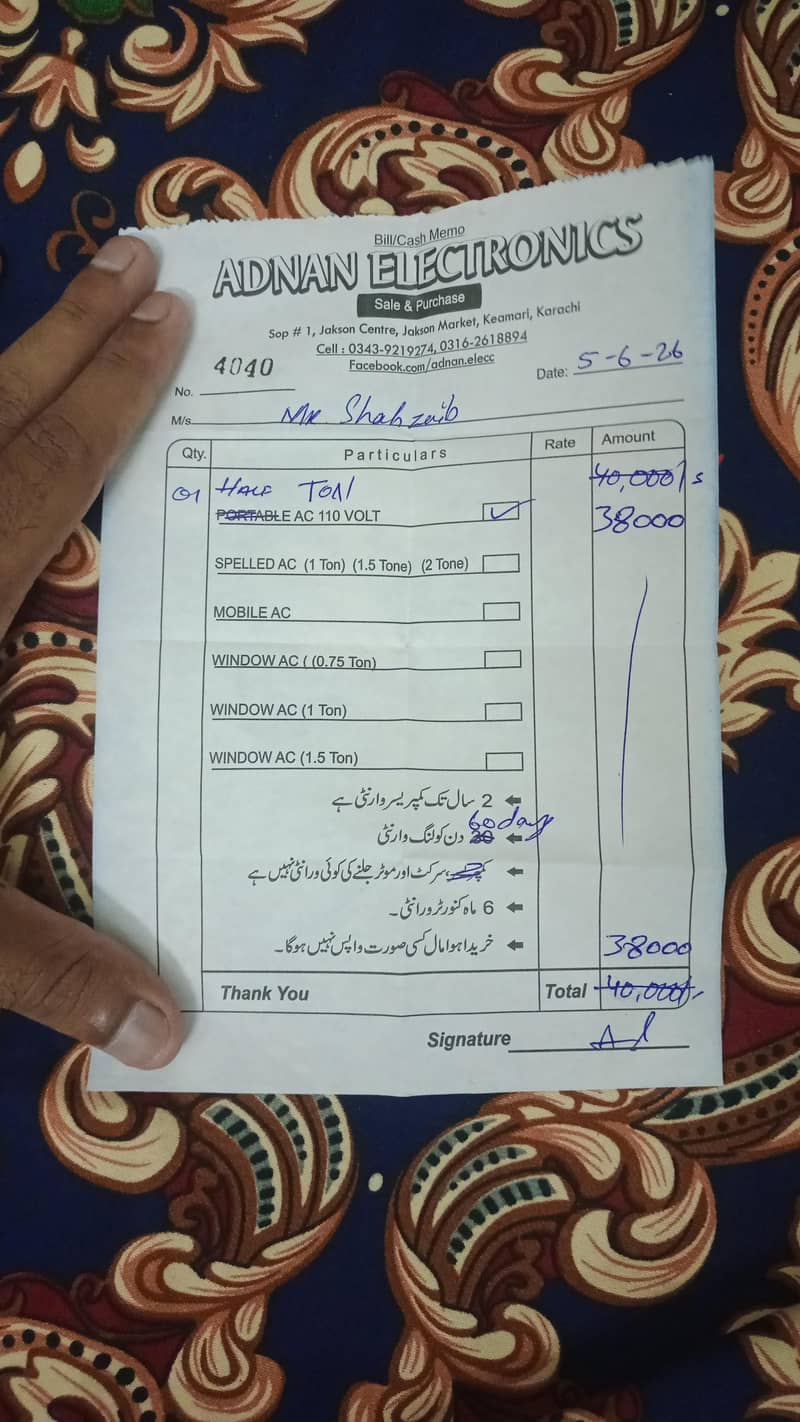 Bill/Cash Memo
ADNAN ELECTRONICS
Sale & Purchase
Sop # 1, Jakson Centre, Jakson Market, Keamari, Karachi
Cell : 0343-9219274, 0316-2618894
Facebook.com/adnan.elecc
No. 4040
Date: 5-6-26
M/s. Mr Shahzaib
Qty. Particulars Rate Amount
01 HALF TON 40,000/s
PORTABLE AC 110 VOLT ✓ 38000
SPELLED AC (1 Ton) (1.5 Tone) (2 Tone)
MOBILE AC
WINDOW AC ( (0.75 Ton)
WINDOW AC (1 Ton)
WINDOW AC (1.5 Ton)
2 سال تک کمپریسر وارنٹی ہے
60 days
دن کولنگ وارنٹی
سرکٹ اور موٹر جلنے کی کوئی ورانٹی نہیں ہے
6 ماہ کنورٹر ورانٹی۔
خریدا ہوا مال کسی صورت واپس نہیں ہوگا۔
38000
Thank You Total 40,000/-
Signature